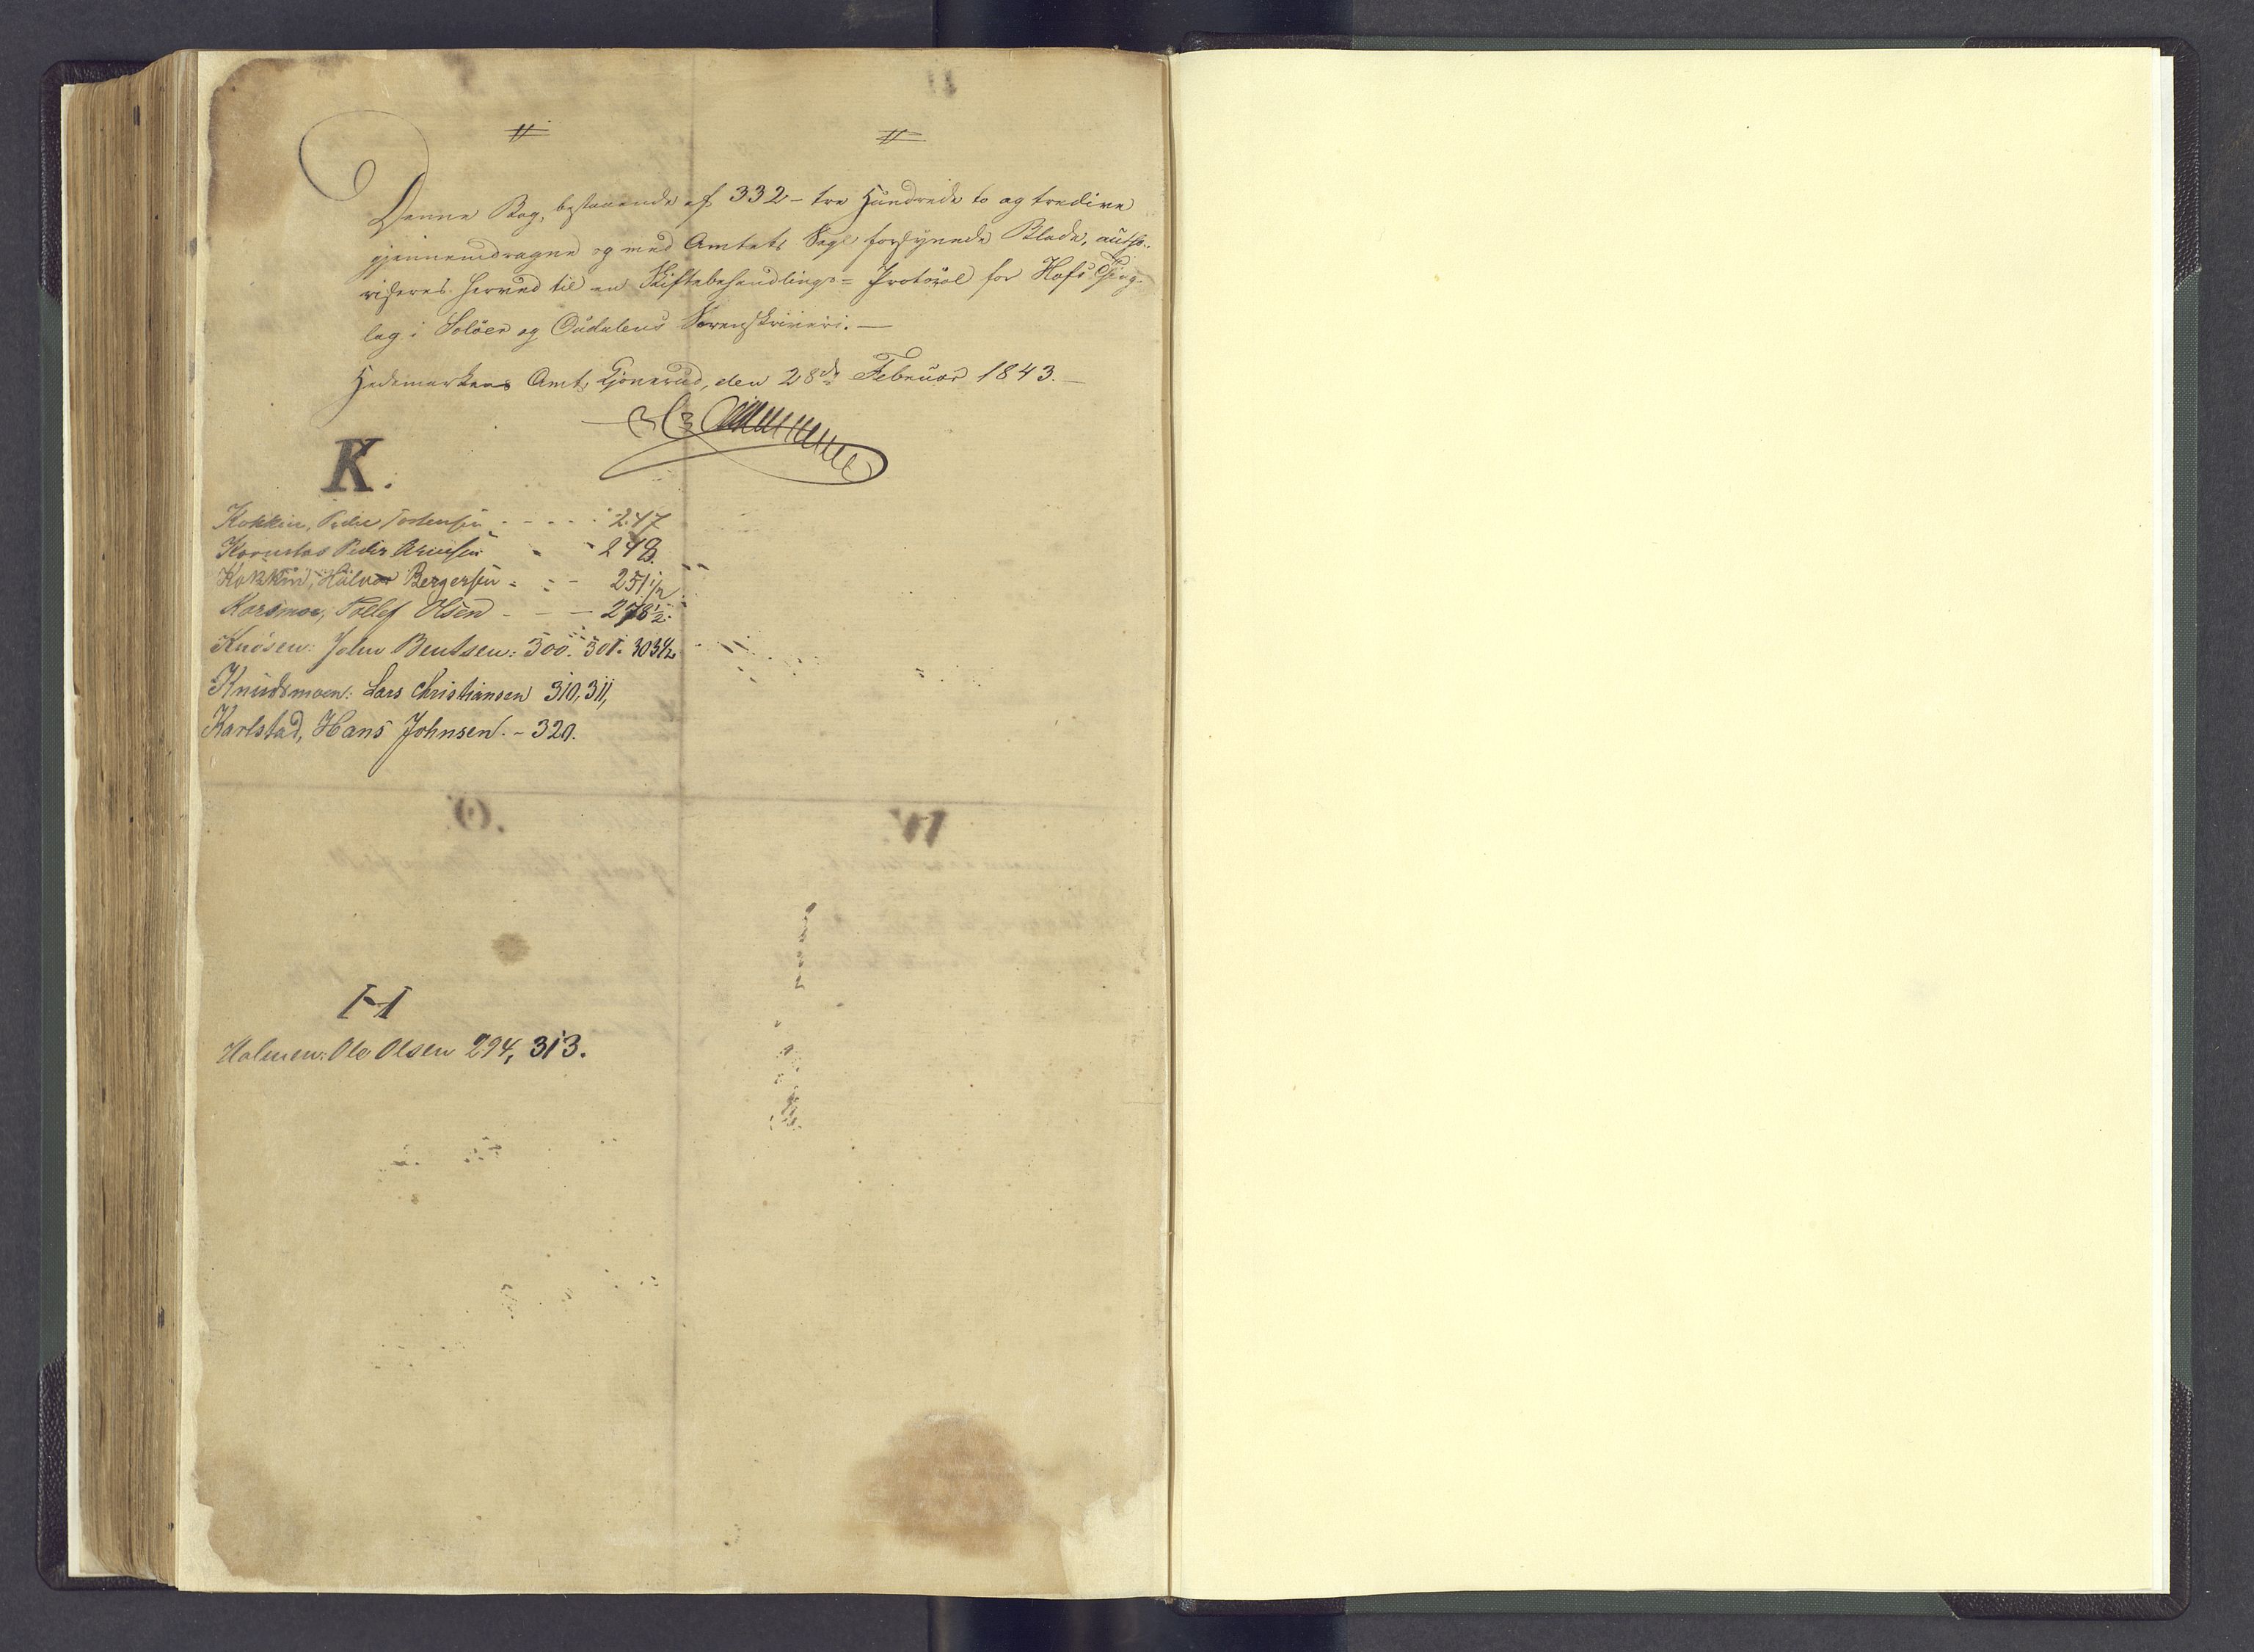 Denne Bog, bestaaende af 332 - tre Hundrede to og tredive
gjennemdragne og med Amtets Segl forsynede Blade, autho-
riseres herved til en Skiftebehandlings-Protocol for Hofs Thing-
lag i Solöer og Oudalens Sorenskriveri. —
Hedemarkens Amt, Gjönerud, den 28de Februar 1843. —
K.
Kokkin, Peder Torstensen - - - - 247
Kornstad Peder Arnesen - - 248.
Kokkin, Halvor Bergersen - - - 251 1/2
Karsmoe, Tollef Olsen - - - 278 1/2.
Knösen: John Bentsen: 300. 301. 303 1/2
Knudsmoen: Lars Christiansen 310, 311,
Karlstad, Hans Johnsen. - 320.
O.
N.
H
Holmen: Ole Olsen 294, 313.